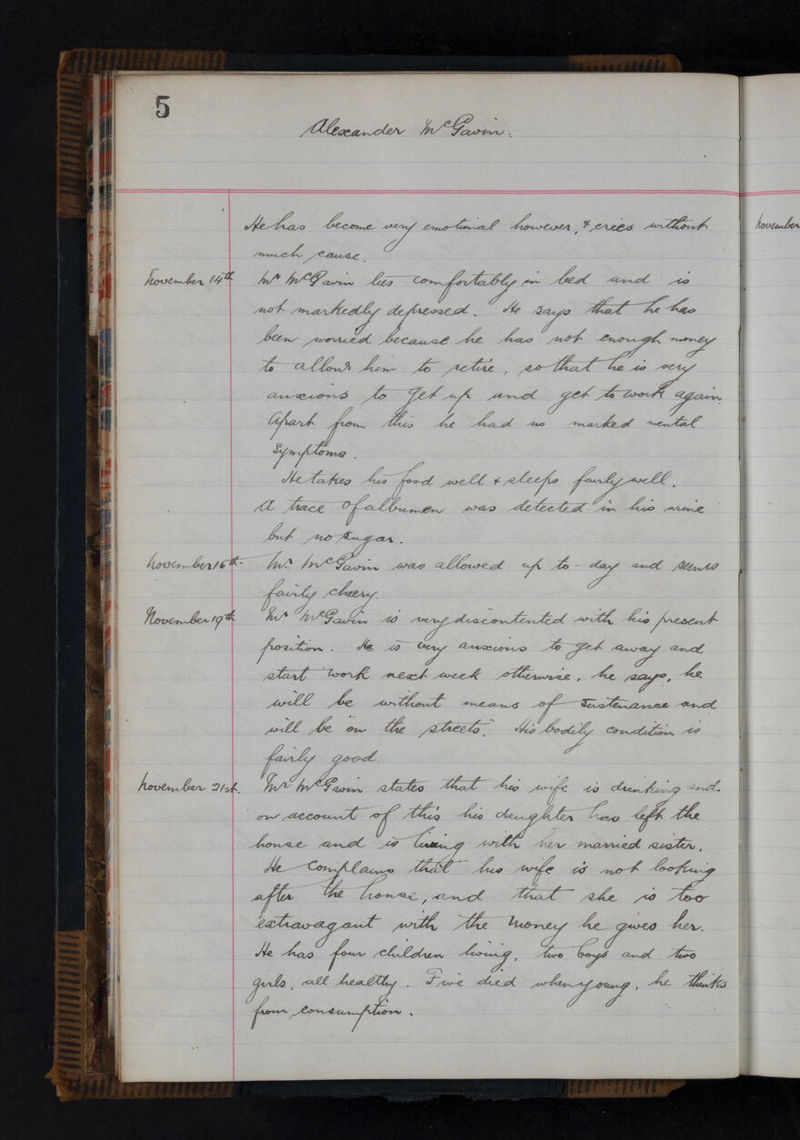 5
Alexander McGavin.
He has become very emotional however, & cries without
much cause.
November 14th Mr McGavin lies comfortably in bed and is
not markedly depressed. He says that he has
been worried because he has not enough money
to allow him to retire, so that he is very
anxious to get up and get to work again.
Apart from this he had no marked mental
symptoms.
He takes his food well & sleeps fairly well.
A trace of albumen was detected in his urine
but no sugar.
November 16th. Mr. McGavin was allowed up to-day and seems
fairly cheery.
November 19th Mr McGavin is very discontented with his present
position. He is very anxious to get away and
start work next week otherwise, he says, he
will be without means of sustenance and
will be "on the streets". His bodily condition is
fairly good.
November 21st. Mr McGavin states that his wife is drinking and
on account of this his daughter has left the
house and is living with her married sister.
He complains that his wife is not looking
after the house, and that she is too
extravagant with the money he gives her.
He has four children living, two boys and two
girls, all healthy. Five died when young, he thinks
from consumption.
November